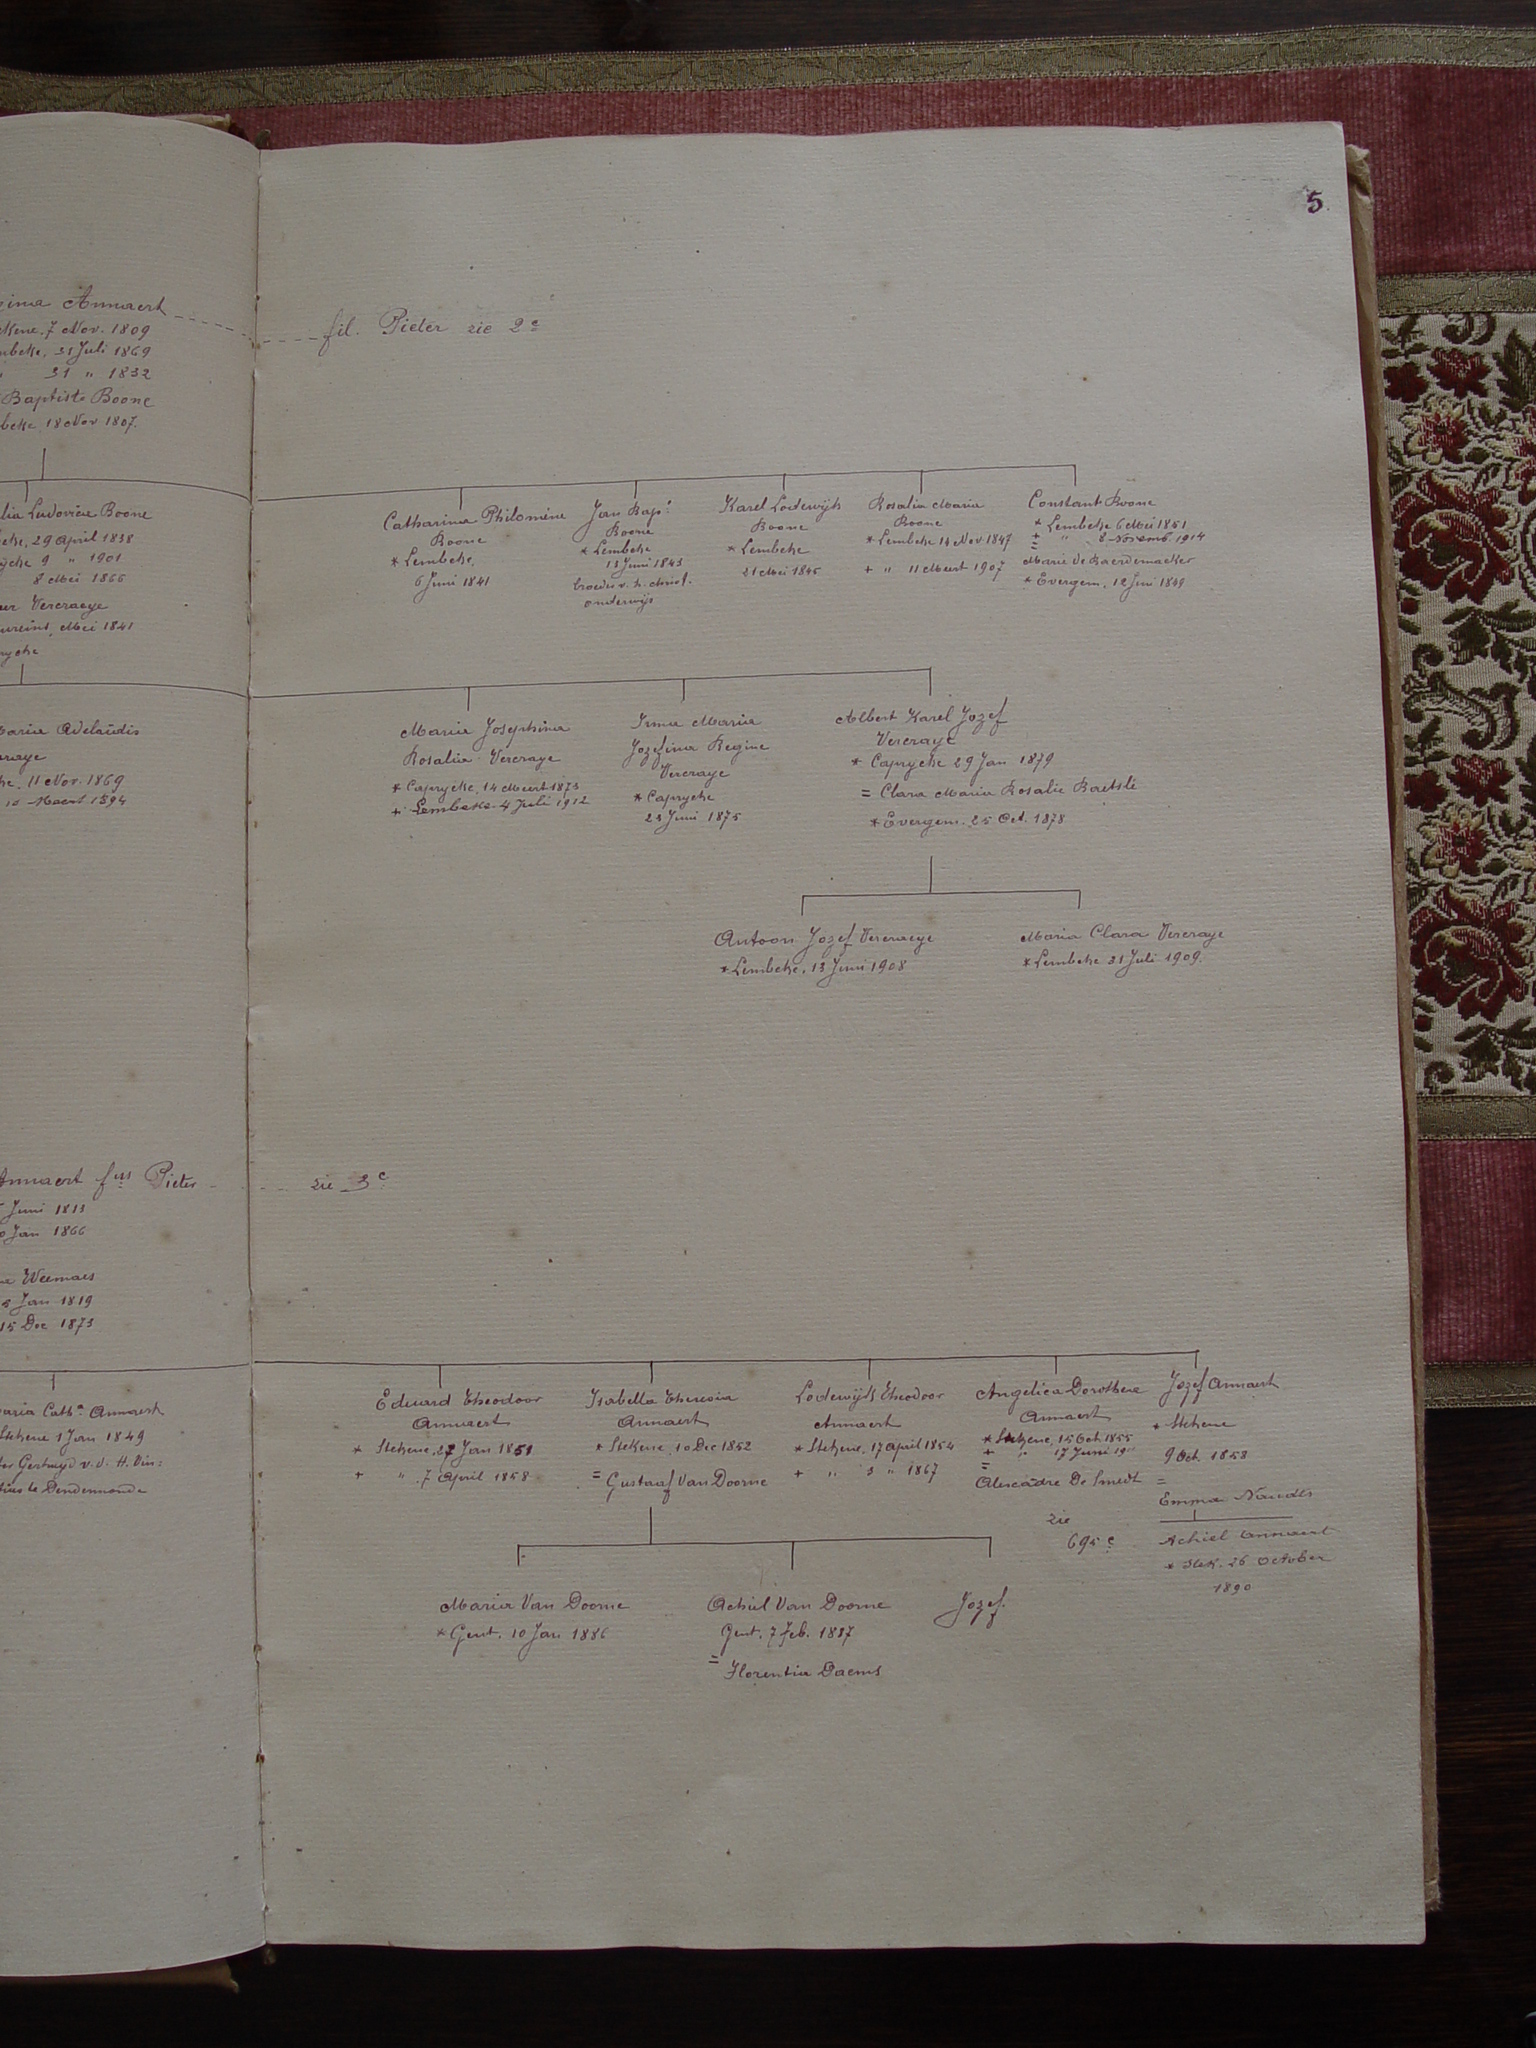 5.
Annaert
7 Nov. 1809
31 Juli 1869
31 " 1832
Baptiste Boone
18 Nov 1807.
fil. Pieter zie 2e
Ludovica Boone
29 April 1838
9 " 1901
8 Mei 1866
Vercraeye
Mei 1841
Catharina Philomène
Boone
* Lembeke,
6 Juni 1841
Jan Bapt
Boone
* Lembeke
13 Juni 1843
broeder v. h. christ.
onderwijs
Karel Lodewijk
Boone
* Lembeke
21 Mei 1845
Rosalia Maria
Boone
* Lembeke 14 Nov. 1847
+ " 11 Meert 1907
Constant Boone
* Lembeke 6 Mei 1851
+ " 8 Novemb. 1914
=
Marie de Raedemaeker
* Evergem, 12 Juni 1849
Maria Adelaïdis
11 Nov. 1869
10 Maert 1894
Maria Josephina
Rosalia Vercraye
* Caprycke, 14 Meert 1873
+ Lembeke 4 Juli 1912
Irma Maria
Jozefina Regine
Vercraye
* Caprycke
23 Juni 1875
Albert Karel Jozef
Vercraye
* Caprycke 29 Jan 1879
= Clara Maria Rosalie Baetslé
* Evergem. 25 Oct. 1878
Antoon Jozef Vercraeye
* Lembeke, 13 Juni 1908
Maria Clara Vercraye
* Lembeke 31 Juli 1909.
Annaert fus Pieter
zie 3e
Juni 1813
Jan 1866
Weemaes
Jan 1819
15 Dec 1873
Maria Cath. Annaert
Stekene 1 Jan 1849
v. d. H. Vin:
te Dendermonde
Eduard Theodoor
Annaert
* Stekene, 27 Jan 1851
+ " 7 April 1858
Isabella Theresia
Annaert
* Stekene, 10 Dec 1852
= Gustaaf Van Doorne
Lodewijk Theodoor
Annaert
* Stekene, 17 April 1854
+ " 3 " 1867
Angelica Dorothea
Annaert
* Stekene, 15 Oct. 1855
+ " 17 Juni
=
Alexādre De Smedt
zie
695e
Jozef Annaert
* Stekene
9 Oct. 1858
=
Emma Naudts
Achiel Annaert
* Stek. 26 October
1890
Maria Van Doorne
* Gent. 10 Jan 1886
Achiel Van Doorne
Gent. 7 Feb. 1887
= Florentia Daems
Jozef.